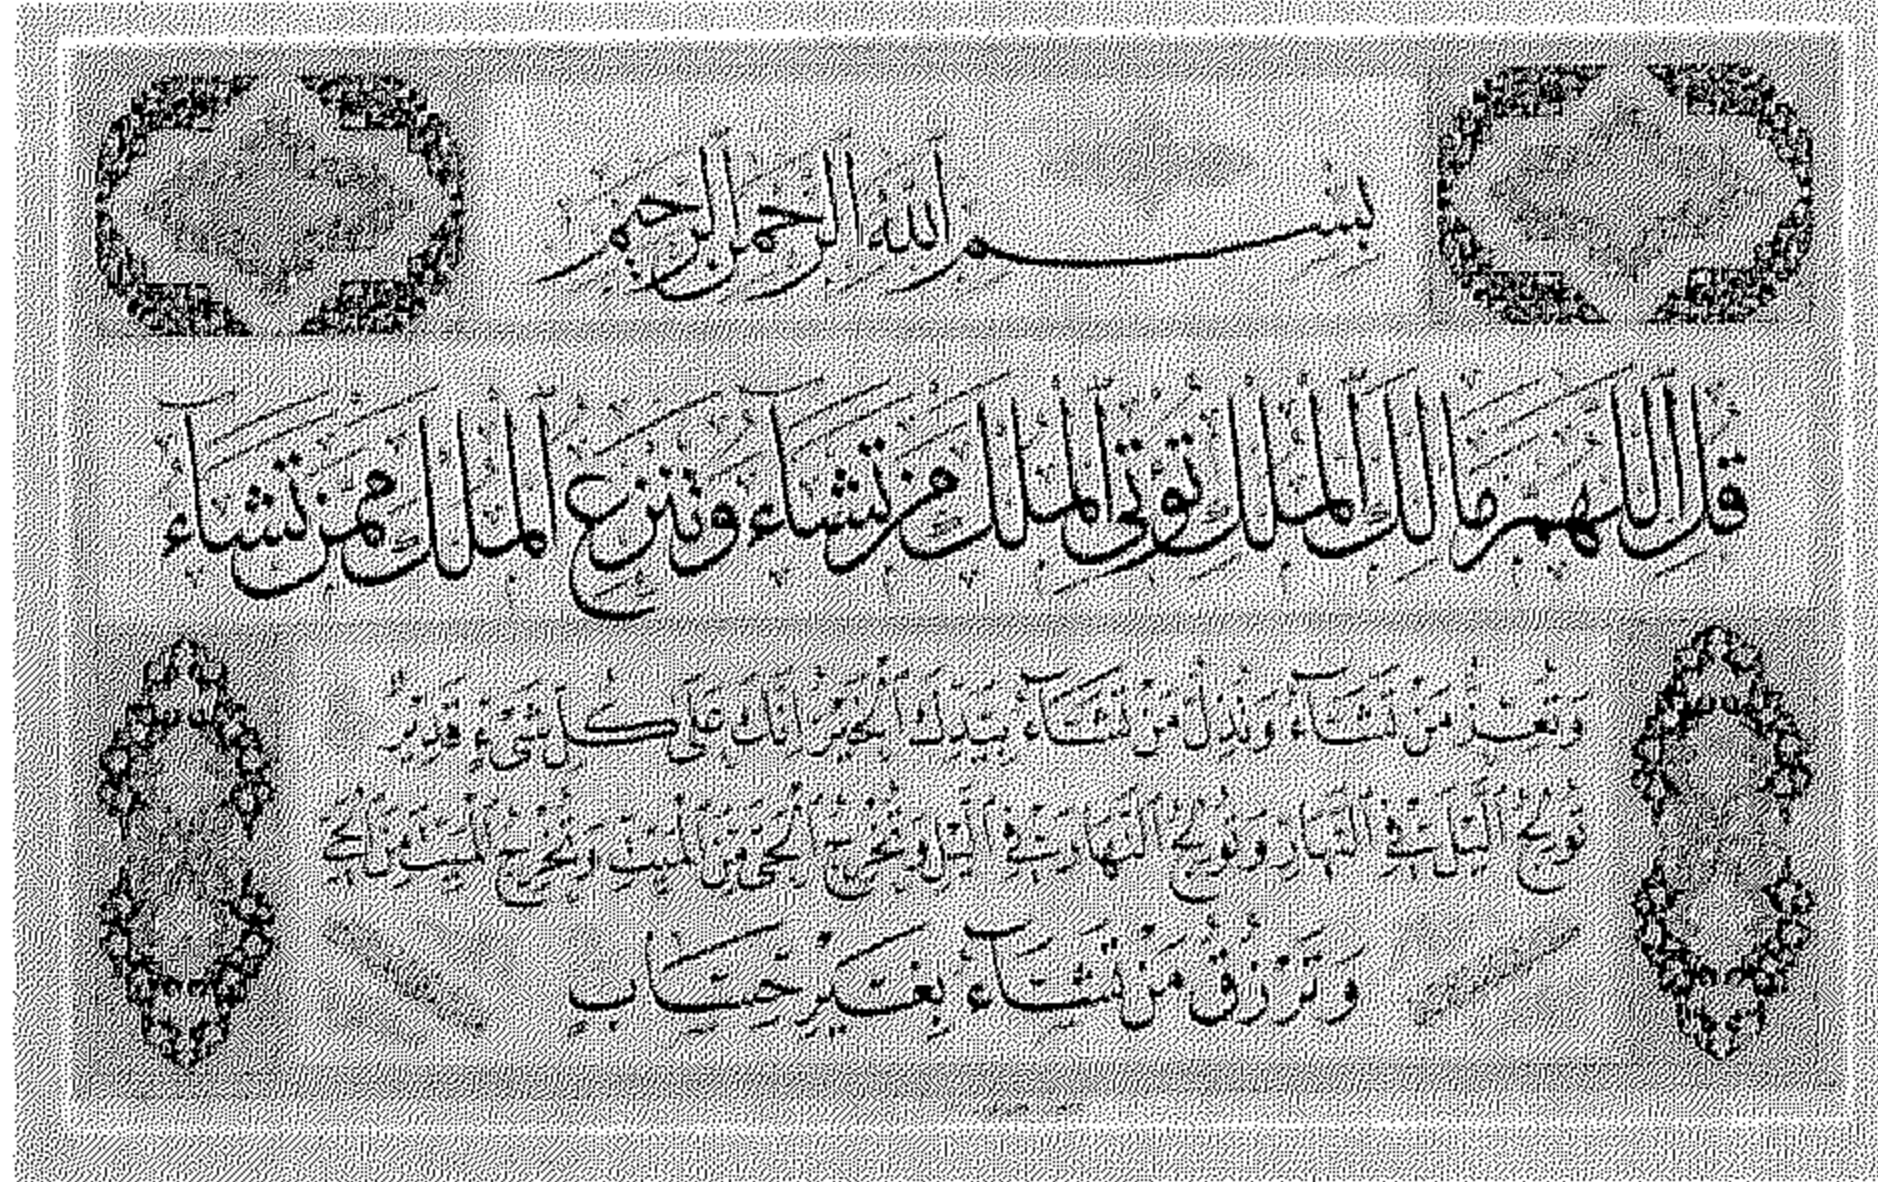 بسم الله الرحمن الرحيم
قل اللهم مالك الملك تؤتى الملك من تشآء وتنزع الملك ممن تشآء
وَتُعِزُّ مَنْ تَشَآءُ وَتُذِلُّ مَنْ تَشَآءُ بِيَدِكَ الْخَيْرُ اِنَّكَ عَلَى كُلِّ شَىْءٍ قَدِيْرٌ
تُولِجُ الَّيْلَ فِى النَّهَارِ وَتُولِجُ النَّهَارَ فِى الَّيْلِ وَتُخْرِجُ الْحَىَّ مِنَ الْمَيِّتِ وَتُخْرِجُ الْمَيِّتَ مِنَ الْحَىِّ
وَتَرْزُقُ مَنْ تَشَآءُ بِغَيْرِ حِسَابٍ